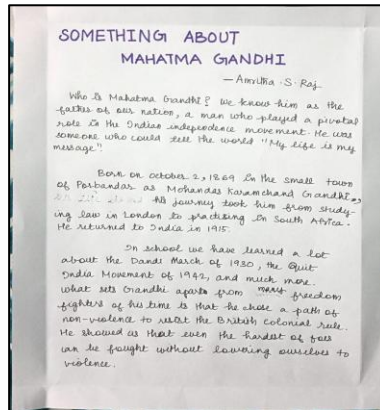 SOMETHING ABOUT
MAHATMA GANDHI
— Amritha .S. Raj
Who is Mahatma Gandhi? We know him as the
father of our nation, a man who played a pivotal
role in the Indian independence movement. He was
someone who could tell the world "My life is my
message".
Born on October 2, 1869 in the small town
of Porbandar as Mohandas Karamchand Gandhi,
his journey took him from study-
ing law in London to practising in South Africa.
He returned to India in 1915.
In school we have learned a lot
about the Dandi March of 1930, the Quit
India Movement of 1942, and much more.
What sets Gandhi apart from many freedom
fighters of his time is that he chose a path of
non-violence to resist the British colonial rule.
He showed us that even the hardest of foes
can be fought without lowering ourselves to
violence.